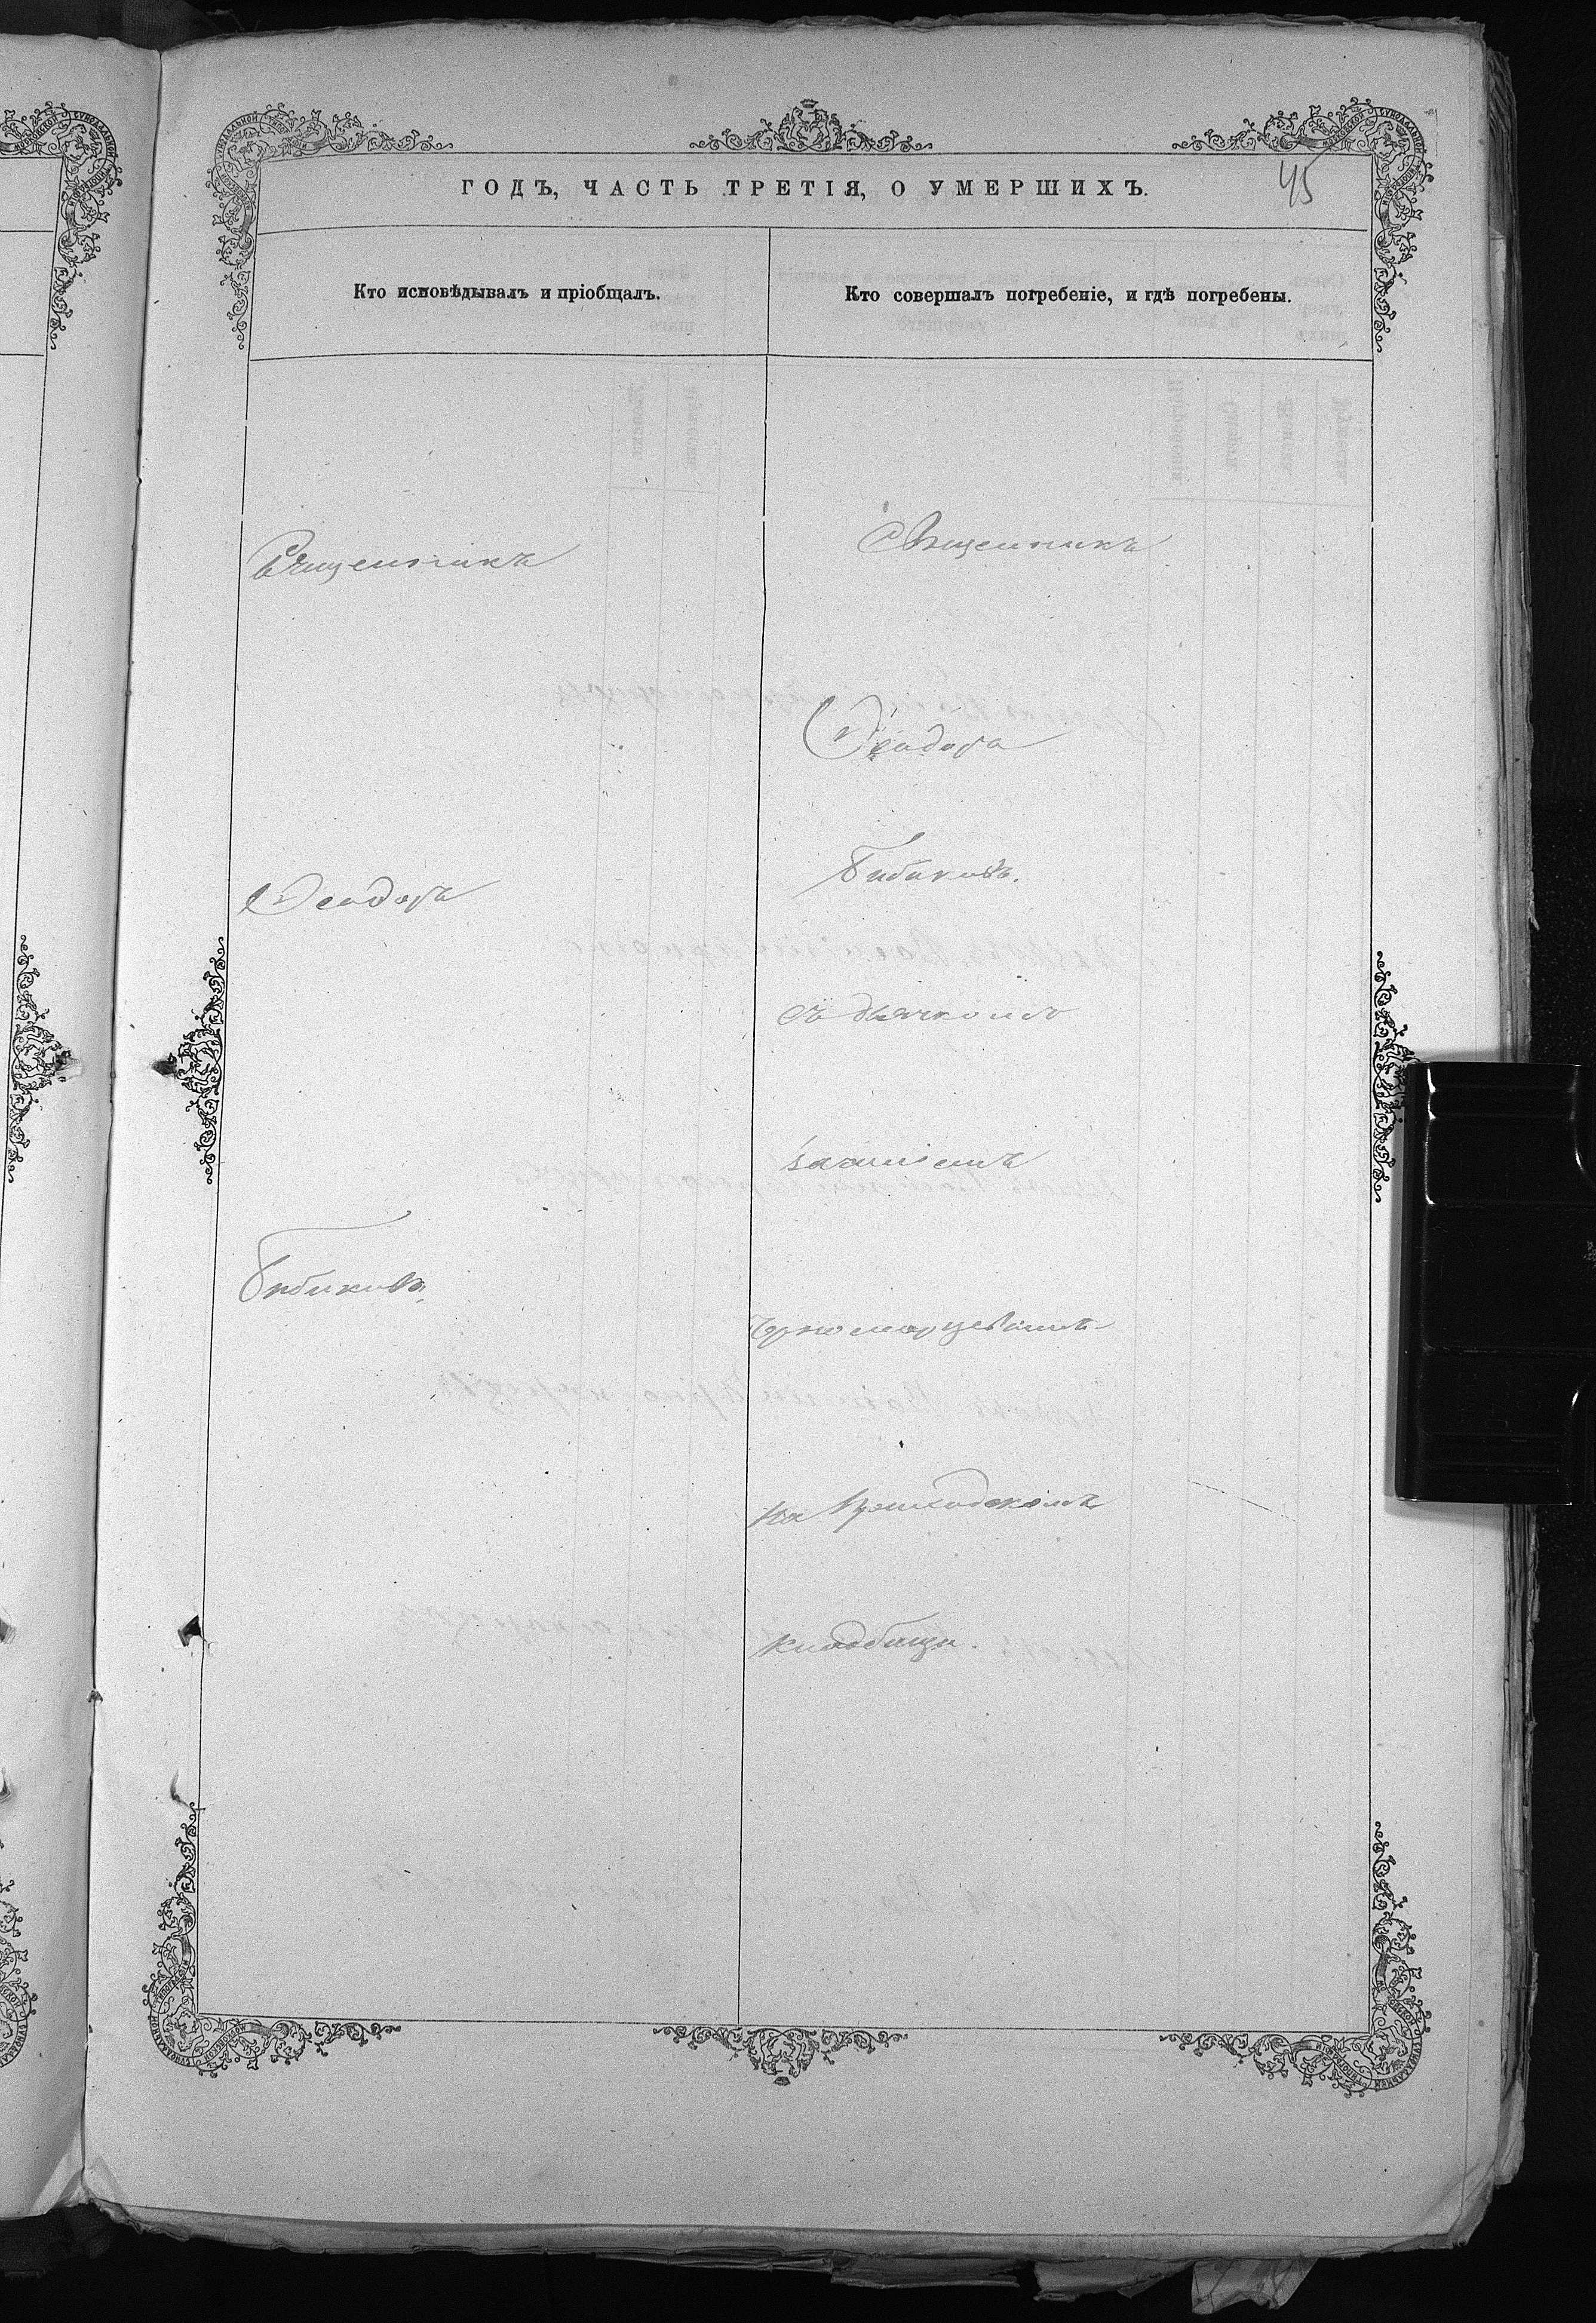 ГОДЪ, ЧАСТЬ ТРЕТІЯ, О УМЕРШИХЪ.
45
Кто исповѣдывалъ и пріобщалъ.
Священникъ
Ѳеодоръ
Бибиковъ
Кто совершалъ погребеніе, и гдѣ погребены.
Священникъ
Ѳеодоръ
Бибиковъ.
съ дьячкомъ
Черноморцевымъ
на приходскомъ
кладбищи.